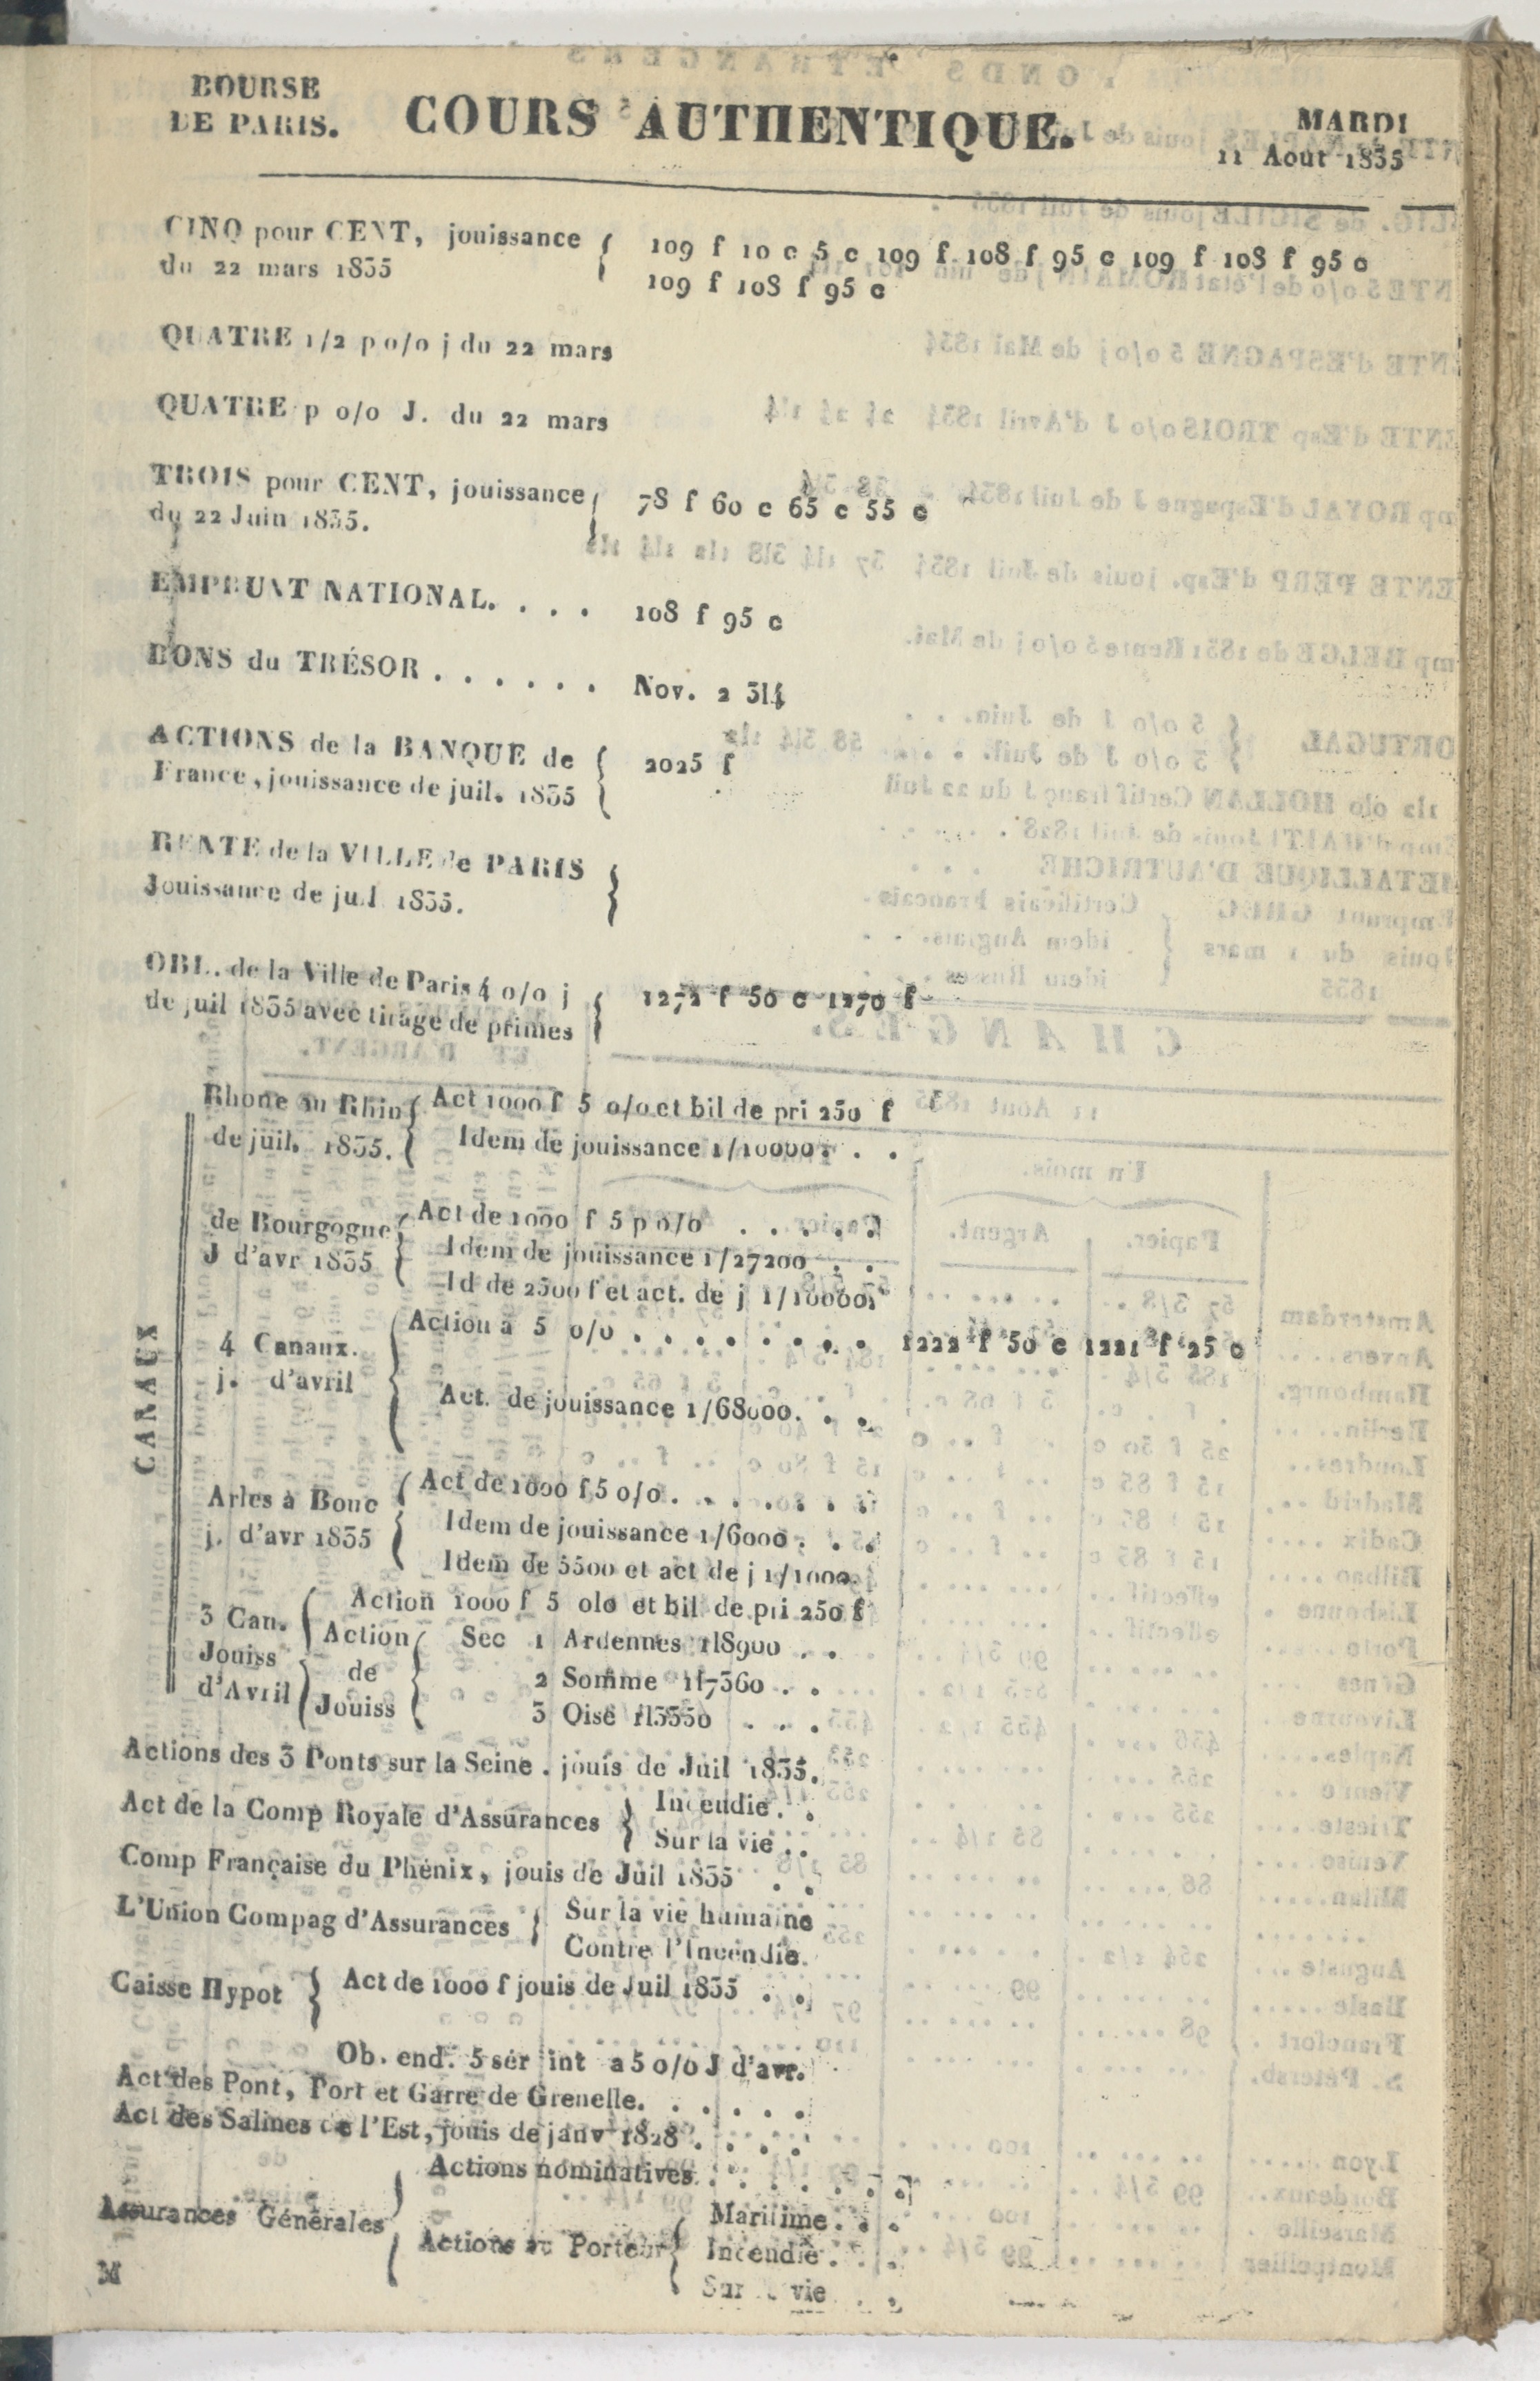 BOURSE
DE PARIS.
COURS AUTHENTIQUE.
MARDI
11 Aout 1835
CINQ pour CENT, jouissance
du 22 mars 1835
109 f 10 c 5 c 109 f 108 f 95 c 109 f 108 f 95 c
109 f 108 f 95 c
QUATRE 1/2 p o/o j du 22 mars
QUATRE p o/o J. du 22 mars
TROIS pour CENT, jouissance
du 22 Juin 1835.
78 f 60 c 65 c 55 c
EMPRUNT NATIONAL. . . . 108 f 95 c
BONS du TRÉSOR . . . . . . Nov. 2 3|4
ACTIONS de la BANQUE de
France, jouissance de juil. 1835
2025 f
RENTE de la VILLE de PARIS
Jouissance de juil 1835.
OBL. de la Ville de Paris 4 o/o j
de juil 1835 avec tirage de primes
1272 f 50 c 1270 f
CARAUX
Rhone au Rhin
de juil. 1835.
Act 1000 f 5 o/o et bil de pri 250 f
Idem de jouissance 1/10000. . .
de Bourgogne
J d'avr 1835
Act de 1000 f 5 p o/o . . . . .
Idem de jouissance 1/27200 . .
Id de 2500 f et act. de j 1/10000.
4 Canaux.
j. d'avril
Action à 5 o/o . . . . . . . . 1222 f 50 c 1221 f 25 c
Act. de jouissance 1/68000. . .
Arles à Bouc
j. d'avr 1835
Act de 1000 f 5 o/o. . . . . . .
Idem de jouissance 1/6000. . .
Idem de 5500 et act de j 1/1000.
3 Can.
Jouiss
d'Avril
Action 1000 f 5 o|o et bil de pri 250 f
Action
de
Jouiss
Sec 1 Ardennes 1|8900 . .
2 Somme 1|7360 . .
3 Oise 1|3350 . . .
Actions des 3 Ponts sur la Seine . jouis de Juil 1835.
Act de la Comp Royale d'Assurances
Incendie. .
Sur la vie . .
Comp Française du Phénix, jouis de Juil 1835 . .
L'Union Compag d'Assurances
Sur la vie humaine
Contre l'Incendie.
Caisse Hypot
Act de 1000 f jouis de Juil 1835 . .
Ob. end. 5 sér int a 5 o/o J d'avr.
Act des Pont, Port et Garre de Grenelle. . . . . .
Act des Salines de l'Est, jouis de janv 1828 . . . .
Assurances Générales
Actions nominatives. . . . . . .
Actions au Porteur
Maritime. . .
Incendie. . .
Sur la vie . .
M